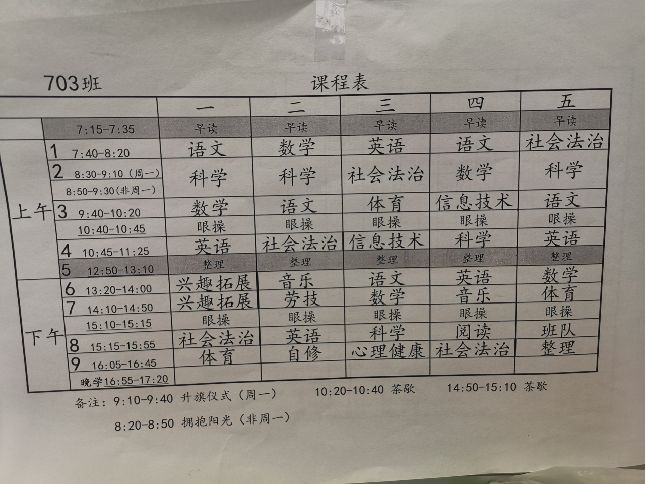 703班 课程表
一 二 三 四 五
7:15-7:35 早读 早读 早读 早读 早读
上午
1 7:40-8:20 语文 数学 英语 语文 社会法治
2 8:30-9:10 (周一) 科学 科学 社会法治 数学 科学
8:50-9:30(非周一)
3 9:40-10:20 数学 语文 体育 信息技术 语文
10:40-10:45 眼操 眼操 眼操 眼操 眼操
4 10:45-11:25 英语 社会法治 信息技术 科学 英语
5 12:50-13:10 整理 整理 整理 整理 整理
下午
6 13:20-14:00 兴趣拓展 音乐 语文 英语 数学
7 14:10-14:50 兴趣拓展 劳技 数学 音乐 体育
15:10-15:15 眼操 眼操 眼操 眼操 眼操
8 15:15-15:55 社会法治 英语 科学 阅读 班队
9 16:05-16:45 体育 自修 心理健康 社会法治 整理
晚学16:55-17:20
备注: 9:10-9:40 升旗仪式(周一) 10:20-10:40 茶歇 14:50-15:10 茶歇
8:20-8:50 拥抱阳光(非周一)